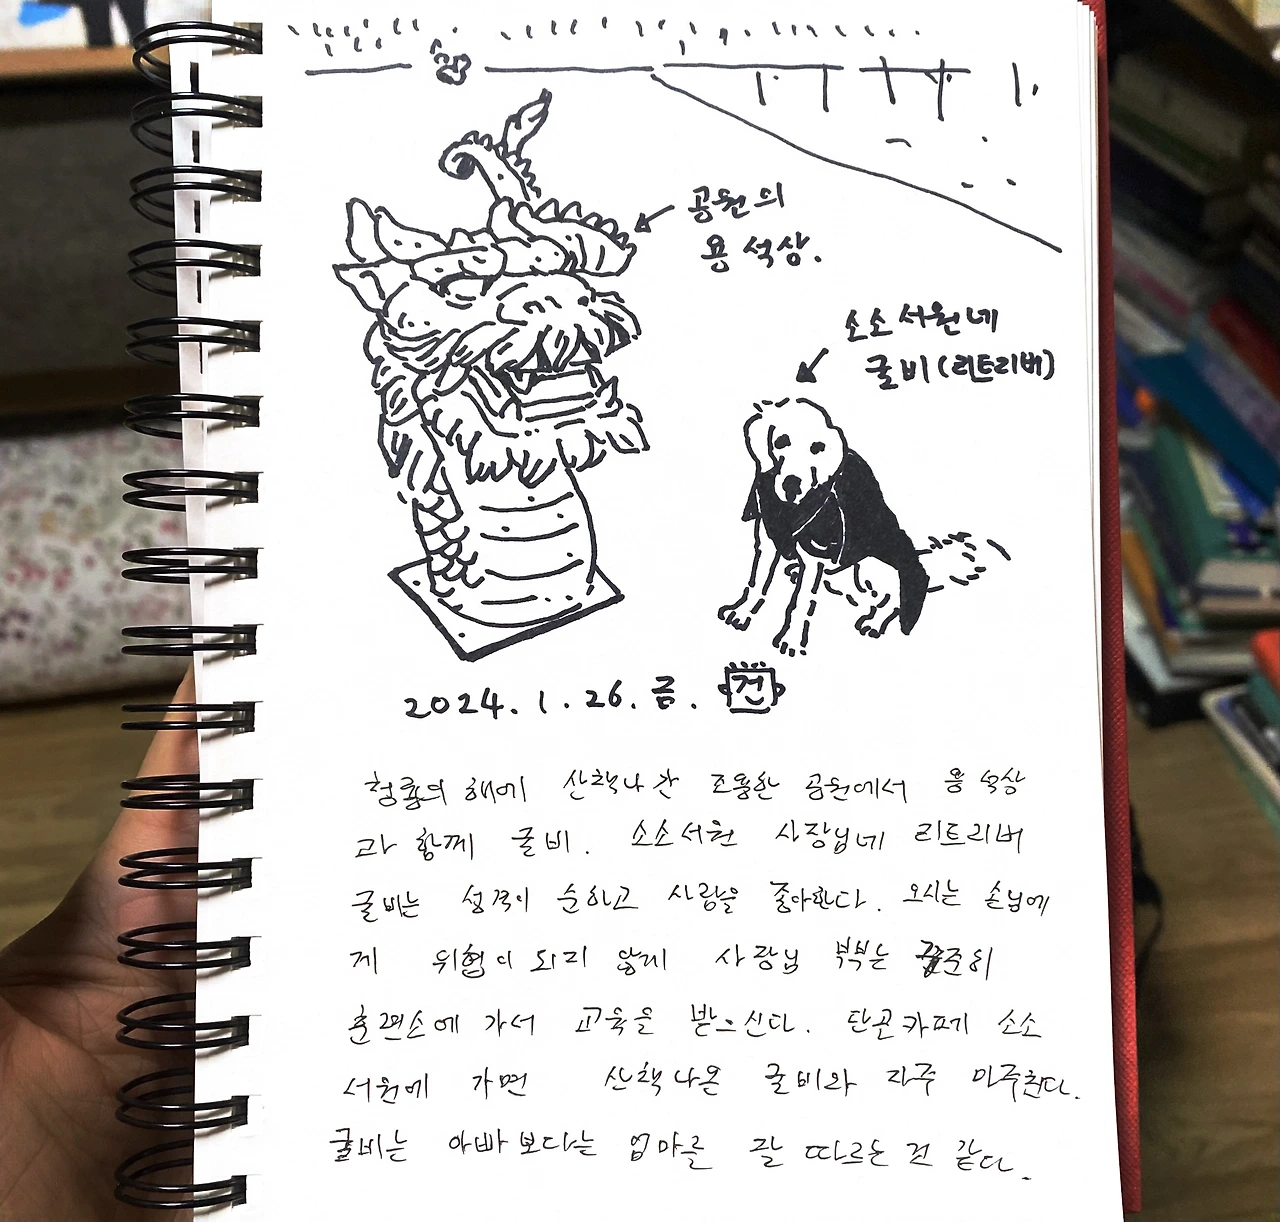 공원의
용 석상.
소소서원네
굴비(리트리버)
2024. 1. 26. 금. 건
청룡의 해에 산책나간 조용한 공원에서 용 석상
과 함께 굴비. 소소서원 사장님네 리트리버
굴비는 성격이 순하고 사람을 좋아한다. 오시는 손님에
게 위협이 되지 않게 사장님 부부는 꾸준히
훈련소에 가서 교육을 받으신다. 단골카페 소소
서원에 가면 산책나온 굴비와 자주 마주친다.
굴비는 아빠보다는 엄마를 잘 따르는 것 같다.